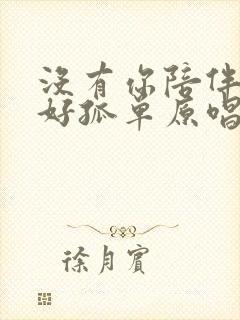 没有你陪伴
好孤单原唱
徐月賓